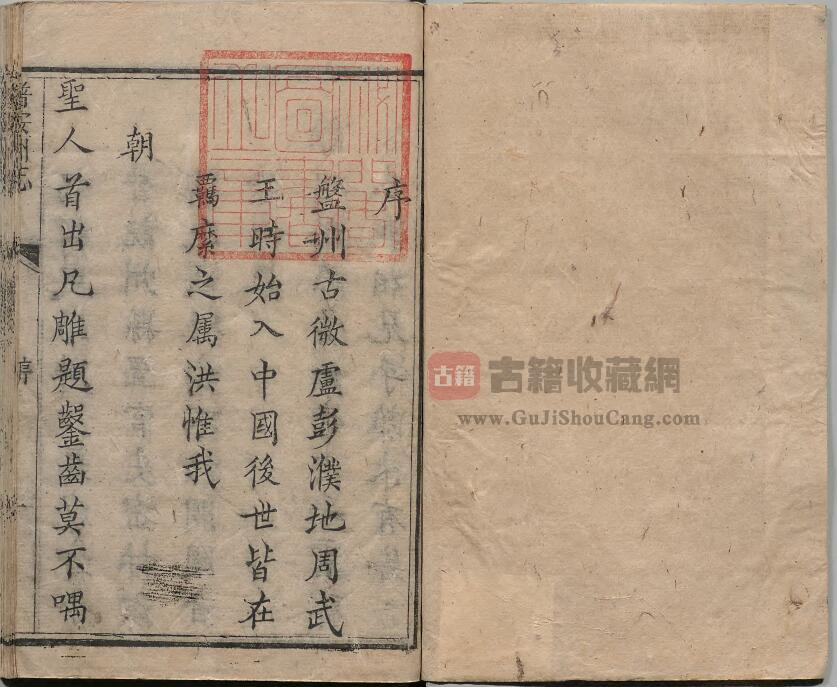 序
盤州古微盧彭濮地周武
王時始入中國後世皆在
羈縻之属洪惟我
朝
聖人首出凡雕題鑿齒莫不喁
普安州志
序
古籍
古籍收藏網
www.GuJiShouCang.com